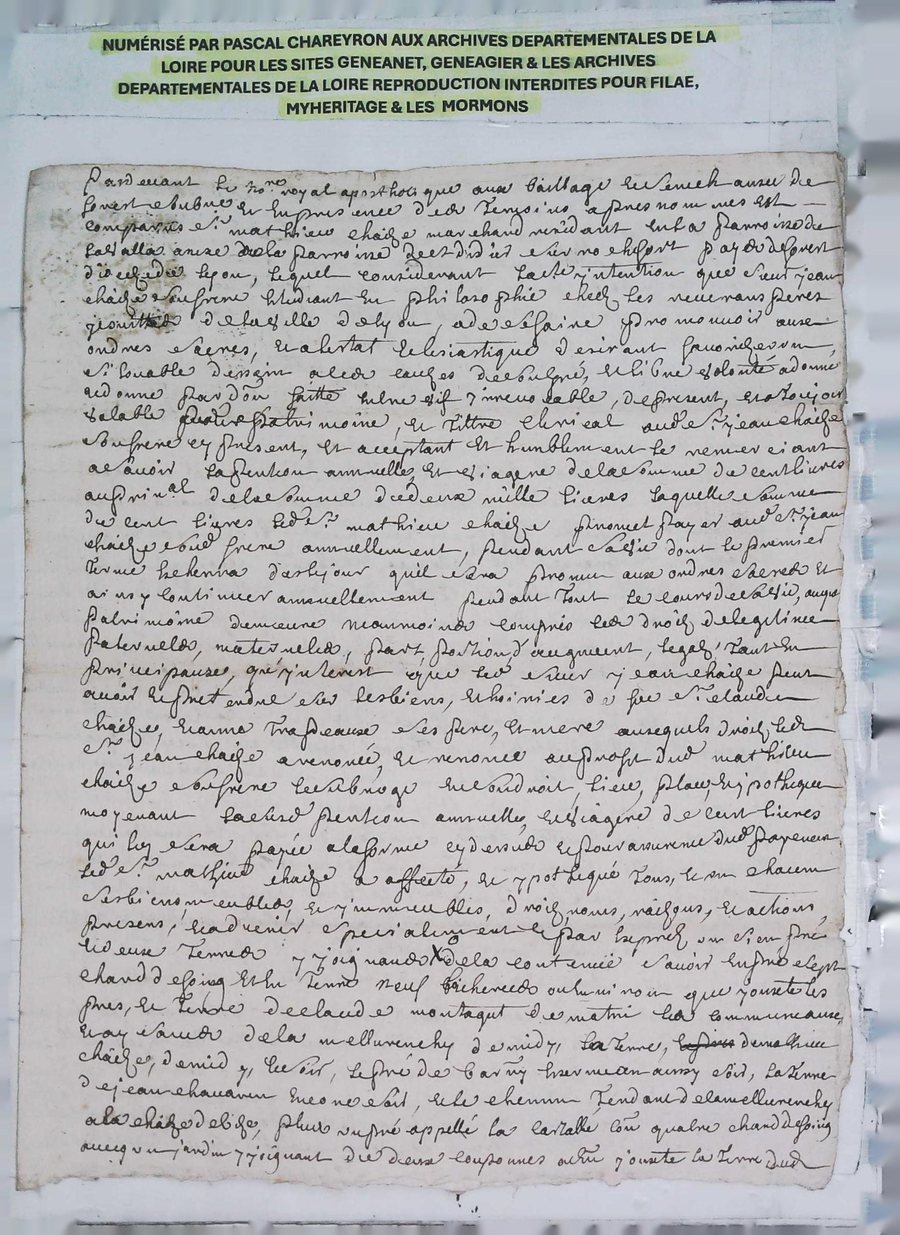 NUMÉRISÉ PAR PASCAL CHAREYRON AUX ARCHIVES DEPARTEMENTALES DE LA
LOIRE POUR LES SITES GENEANET, GENEAGIER & LES ARCHIVES
DEPARTEMENTALES DE LA LOIRE REPRODUCTION INTERDITES POUR FILAE,
MYHERITAGE & LES MORMONS
Pardevant le no.re royal apostholique aux bailliage et senechaussee de
forest et en presence des temoins apres nommes est
comparus s.r mathieu chaize marchand residant en la parroisse de
la valla anexe de la parroisse de st didier sur rochefort pays de forest
diocese de lyon, lequel considerant l'intention que sieur jean
chaize son frere etudiant en philosophie chez les reverans peres
de la ville de lyon, a de se faire promouvoir aux
ordres sacres, et a l'estat eclesiastique desirant favorizer un
sy louable dessain a ces causes de son gré, et libre volonté a donné
et donne par don faitte entre vif irrevocable, de present, et a toujour
valable pour patrimoine, et tittre clerical aud. s.r jean chaize
son frere cy present, et acceptant et humblement le remerciant
a scavoir la pention annuelle, et viagere de la somme de cent livres
au prin.al de la somme de deux mille livres laquelle somme
de cent livres led. s.r mathieu chaize promet payer aud. s.r jean
chaize son frere annuellement, pendant sa vie dont le premier
terme du jour qu'il sera promu aux ordres sacres et
ainsy continuer annuellement pendant tout le cours de sa vie, auquel
patrimoine demeure neanmoins compris les droits de legitime
paternels, maternels, part, portion d'augment, legats tant en
principaux, qu'interest que led. sieur jean chaize peut
avoir et pretendre sur les biens, et hoiries de feu s.r claude
chaize, et anne trapeaux ses pere, et mere ausquels droits led.
s.r jean chaize a renoncé, et renonce au profit dud. mathieu
chaize son frere le subroge en son droit, lieu, place, et ypotheque
moyenant lad. pention annuelle, et viagere de cent livres
qui luy sera payée a la forme cy dessus et pour assurence dud. payement
led. s.r mathieu chaize a affecté, et ypotequé tous, et un chacun
ses biens meubles, et immeubles, droits, noms, raisons, et actions,
presens, et advenir specialement et par exprès un sien pré
et deux terres y joignands de la contenue scavoir en pré sept
chards de foing et en terre neuf bicherees ou environ que jouxte les
pres, et terre de claude montagut de matin les communeaux
et aysances de la de midy, la terre, de mathieu
chaize, de midy, et soir, le pré de aussy soir, la terre
de jean chauaren encore soir, et le chemin tendant de la
a la chaize de bize, plus un pré appellé la con. quatre chards de foing
avecq un jardin y joignant de deux couponnes jouxte la terre dud.